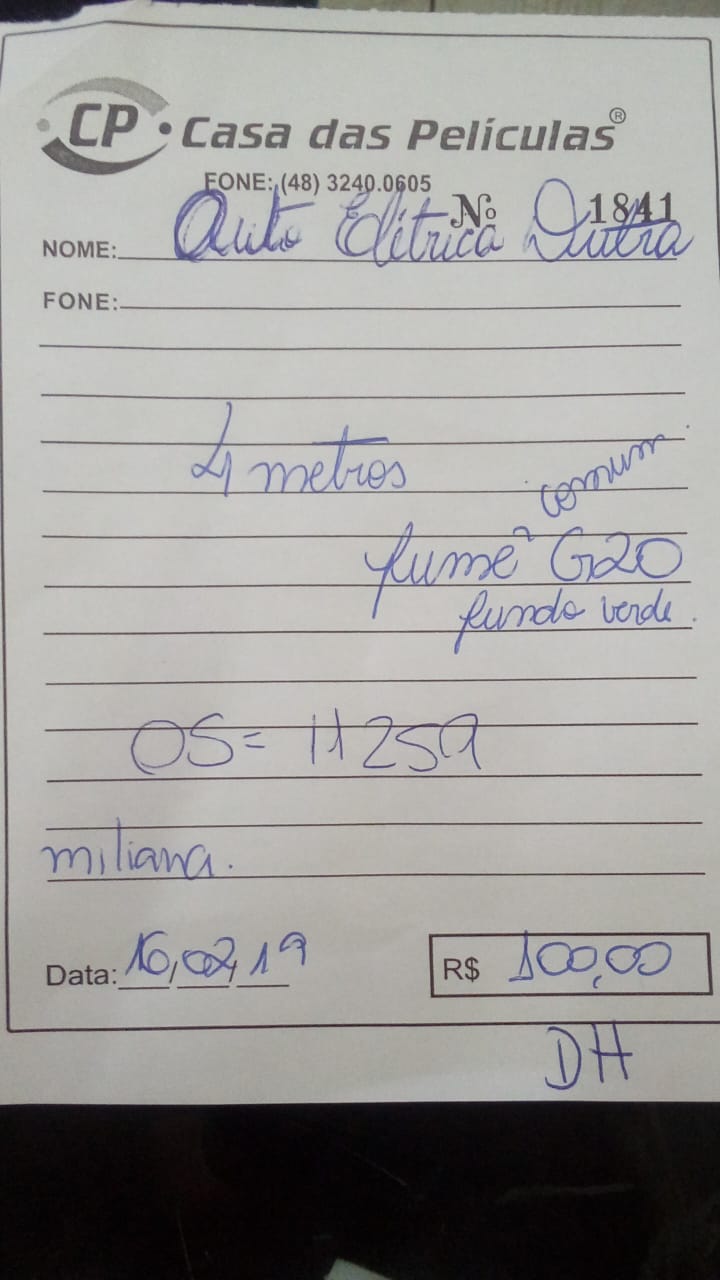 CP • Casa das Películas®
FONE: (48) 3240.0605
Nº 1841
NOME: Auto Elitrica Dutra
FONE:
4 metros
comum
fumê G20
fundo verde.
OS= 11259
miliana.
Data: 16,02,19 R$ 100,00
DH